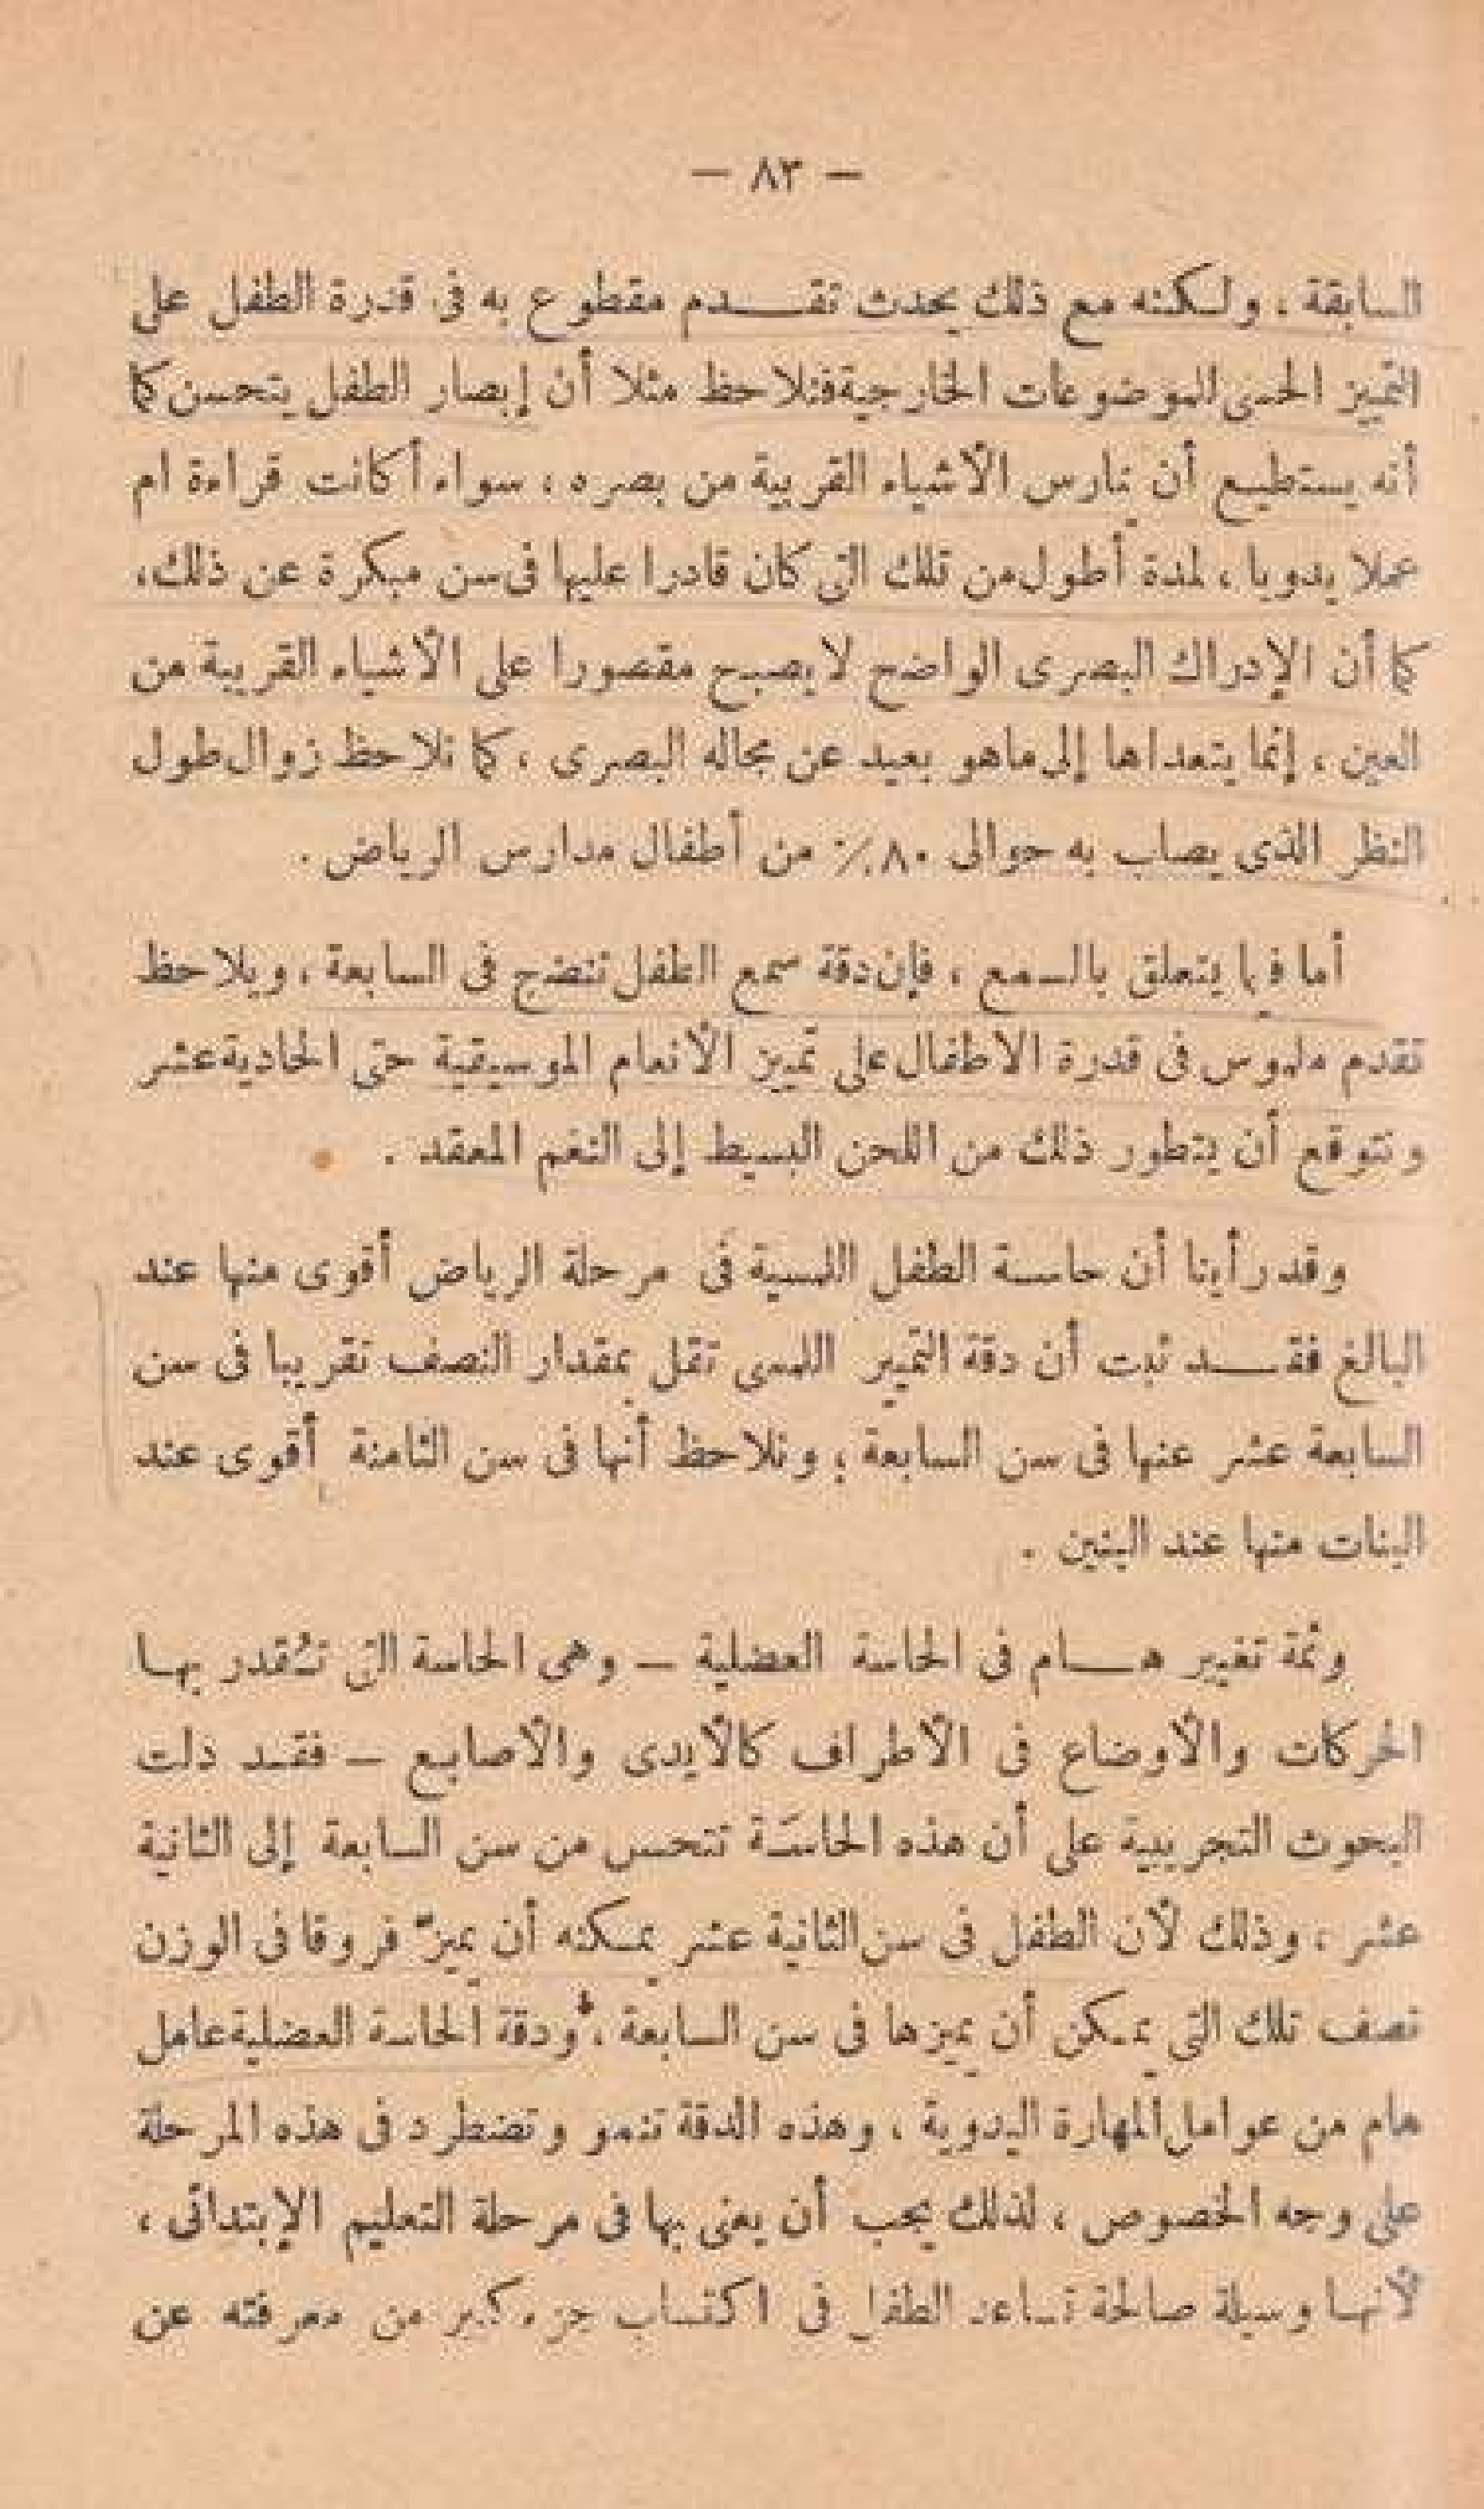 — ٨٣ —
السابقة ، ولكنه مع ذلك يحدث تقدم مقطوع به فى قدرة الطفل على
التمييز الحسى للموضوعات الخارجية فنلاحظ مثلا أن إبصار الطفل يتحسن كما
أنه يستطيع أن يمارس الأشياء القريبة من بصره ، سواء أكانت قراءة ام
عملا يدويا ، لمدة أطول من تلك التى كان قادرا عليها فى سن مبكرة عن ذلك ،
كما أن الإدراك البصرى الواضح لا يصبح مقصورا على الأشياء القريبة من
العين ، إنما يتعداها إلى ما هو بعيد عن مجاله البصرى ، كما نلاحظ زوال طول
النظر الذى يصاب به حوالى ٨٠٪ من أطفال مدارس الرياض .
أما فيما يتعلق بالسمع ، فإن دقة سمع الطفل تنضج فى السابعة ، ويلاحظ
تقدم ملموس فى قدرة الاطفال على تمييز الأنغام الموسيقية حتى الحادية عشر
ونتوقع أن يتطور ذلك من اللحن البسيط إلى النغم المعقد .
وقد رأينا أن حاسة الطفل اللمسية فى مرحلة الرياض أقوى منها عند
البالغ فقد ثبت أن دقة التمييز اللمسى تقل بمقدار النصف تقريبا فى سن
السابعة عشر عنها فى سن السابعة ؛ ونلاحظ أنها فى سن الثامنة أقوى عند
البنات منها عند البنين .
وثمة تغيير هام فى الحاسة العضلية — وهى الحاسة التى تُقدر بها
الحركات والأوضاع فى الأطراف كالأيدى والأصابع — فقد دلت
البحوث التجريبية على أن هذه الحاسة تتحسن من سن السابعة إلى الثانية
عشر ، وذلك لأن الطفل فى سن الثانية عشر يمكنه أن يميزّ فروقا فى الوزن
نصف تلك التى يمكن أن يميزها فى سن السابعة ، ودقة الحاسة العضلية عامل
هام من عوامل المهارة اليدوية ، وهذه الدقة تنمو وتضطرد فى هذه المرحلة
على وجه الخصوص ، لذلك يجب أن يعنى بها فى مرحلة التعليم الإبتدائى ،
لأنها وسيلة صالحة تساعد الطفل فى اكتساب جزء كبير من معرفته عن